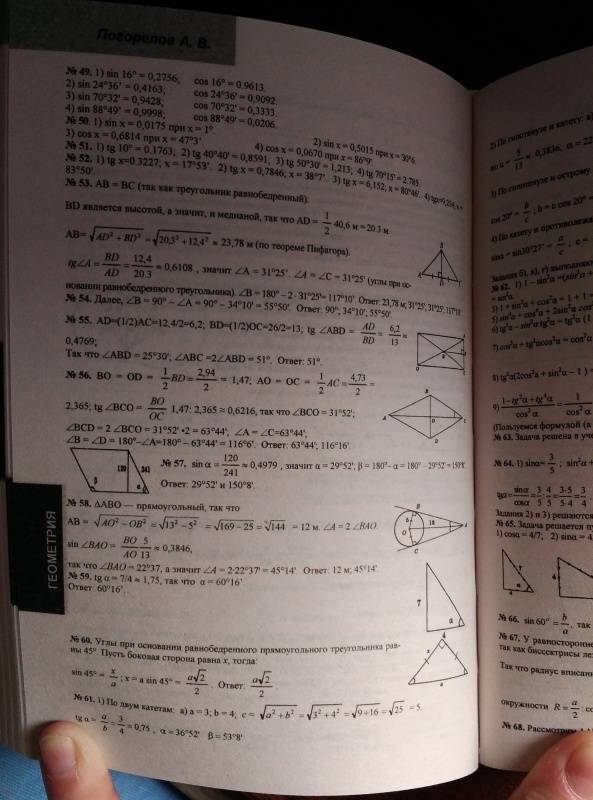 Погорелов А. В.
№ 49. 1) sin 16° = 0,2756, cos 16° = 0,9613.
2) sin 24°36' = 0,4163; cos 24°36' = 0,9092.
3) sin 70°32' = 0,9428; cos 70°32' = 0,3333.
4) sin 88°49' = 0,9998; cos 88°49' = 0,0206.
№ 50. 1) sin x = 0,0175 при x = 1°. 2) sin x = 0,5015 при x = 30°6.
3) cos x = 0,6814 при x = 47°3'. 4) cos x = 0,0670 при x = 86°9'.
№ 51. 1) tg 10° = 0.1763; 2) tg 40°40' = 0,8591; 3) tg 50°30' = 1,213; 4) tg 70°15' = 2.785
№ 52. 1) tg x=0.3227; x = 17°53'. 2) tg x = 0,7846, x = 38°7'. 3) tg x = 6,152, x = 80°46'. 4) tgx=9,254, x =
83°50'.
№ 53. AB = BC (так как треугольник равнобедренный).
BD является высотой, а значит, и медианой, так что AD = 1/2 40,6 м = 20.3 м.
AB= √AD² + BD² = √20,3² + 12,4² ≈ 23,78 м (по теореме Пифагора).
tg∠A = BD/AD = 12,4/20.3 ≈ 0,6108 , значит ∠A = 31°25'. ∠A = ∠C = 31°25' (углы при ос-
новании равнобедренного треугольника). ∠B = 180° – 2 · 31°25'= 117°10' Ответ: 23,78 м; 31°25', 31°25', 117°10'
№ 54. Далее, ∠B = 90° – ∠A = 90° – 34°10' = 55°50'. Ответ: 90°, 34°10'; 55°50'.
№ 55. AD=(1/2)AC=12,4/2=6,2; BD=(1/2)OC=26/2=13; tg ∠ABD = AD/BD = 6,2/13 ≈
0,4769;
Так что ∠ABD = 25°30'; ∠ABC =2∠ABD = 51°. Ответ: 51°.
№ 56. BO = OD = 1/2 BD = 2,94/2 = 1,47; AO = OC = 1/2 AC = 4,73/2 =
2,365; tg ∠BCO = BO/OC 1,47: 2,365 ≈ 0,6216, так что ∠BCO = 31°52';
∠BCD = 2 ∠BCO = 31°52' •2 = 63°44', ∠A = ∠C=63°44';
∠B = ∠D = 180°–∠A=180° – 63°44' = 116°6'. Ответ: 63°44'; 116°16'.
№ 57. sin α = 120/241 ≈ 0,4979 , значит α = 29°52'; β = 180°- α = 180° – 29°52' = 150°8'.
Ответ: 29°52' и 150°8'.
120 241 β α
№ 58. ΔABO — прямоугольный, так что
AB = √AO² – OB² = √13² – 5² = √169 – 25 = √144 = 12 м. ∠A = 2 ∠BAO.
sin ∠BAO = BO/AO 5/13 ≈ 0,3846,
так что ∠BAO = 22°37, а значит ∠A = 2·22°37' = 45°14'. Ответ: 12 м; 45°14'.
№ 59. tg α = 7/4 ≈ 1,75, так что α = 60°16'
Ответ: 60°16'.
7 α
ГЕОМЕТРИЯ
№ 60. Углы при основании равнобедренного прямоугольного треугольника рав-
ны 45°. Пусть боковая сторона равна x, тогда:
sin 45° = x/a ; x = a sin 45° = a√2/2 . Ответ: a√2/2
№ 61. 1) По двум катетам: а) a = 3; b = 4; c = √a² + b² = √3² + 4² = √9+16 = √25 = 5.
tg α = a/b = 3/4 = 0,75 , α = 36°52' β = 53°8'
2) По гипотенузе и катету: а)
sin α = 5/13 ≈ 0,3836, α = 22
3) По гипотенузе и острому
cos 20° = b/c ; b = c cos 20° =
4) По катету и противолежа
sinα = sin30°27' = a/c ; c =
Задания б), в), г) выполняют
№ 62. 1) 1 – sin²α =(sin²α +
= sin²α.
3) 1 + sin²α + cos²α = 1 + 1 =
5) sin⁴α + cos⁴α + 2sin²α cos²
6) tg²α – sin²α tg²α = tg²α (1
7) cos²α + tg²αcos²α = cos²α
8) tg²α(2cos²α + sin²α – 1) =
9) 1–tg²α+tg⁴α/cos²α = 1/cos²α
(Пользуемся формулой (а
№ 63. Задача решена в уче
№ 64. 1) sinα= 3/5 ; sin²α +
tgα= sinα/cosα = 3/5 : 4/5 = 3·5/5·4 = 3/4
Задания 2) и 3) решаются
№ 65. Задача решается пу
1) cosα = 4/7; 2) sinα = 4
№ 66. sin 60° = b/a , так
№ 67. У равносторонне
так как биссектрисы леж
Так что радиус вписанн
окружности R = a/2 co
№ 68. Рассмотрим